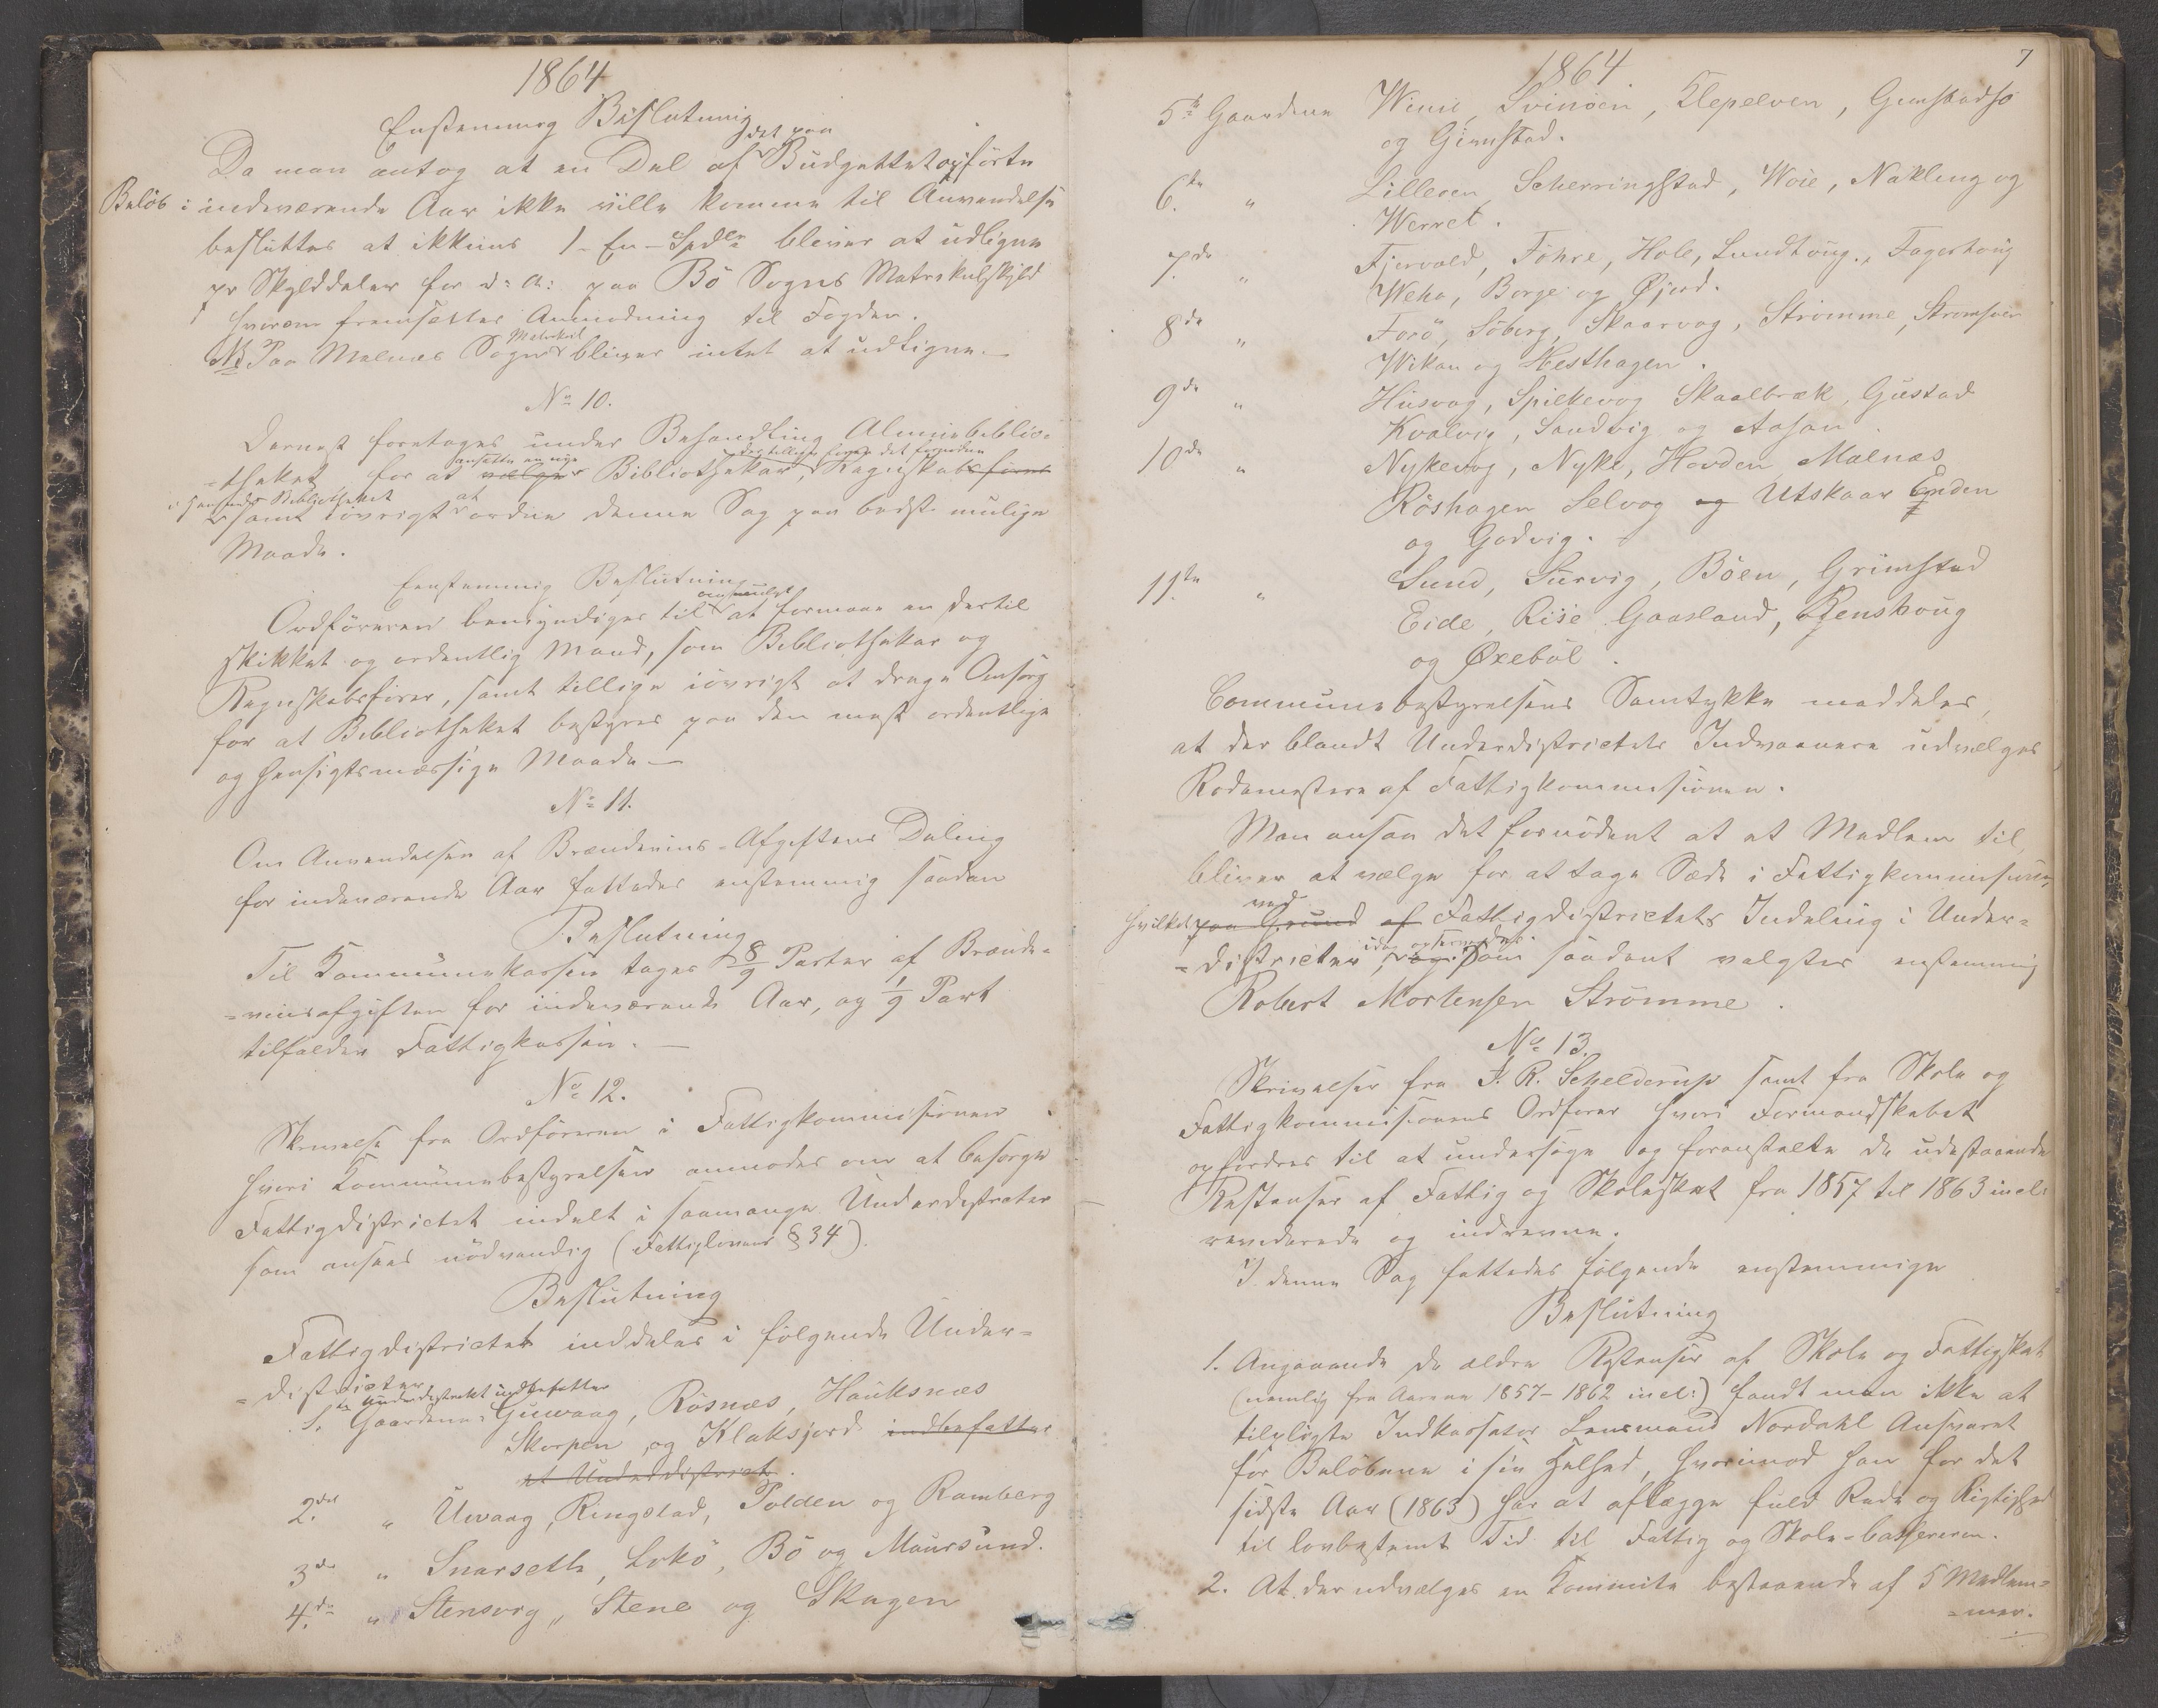 1864
Enstemmig Beslutning
Da man antog at en Del af det paa Budgettet opførte
Beløb i indeværende Aar ikke ville komme til Anvendelse
besluttes at ikkuns 1 - En - Spdlr bliver at udligne
pr Skylddaler for d: A: paa Bö Sogns Matrikulskyld
hvorom fremsættes Anmodning til Fogden.
NB Paa Malnæs Sogns Matrikul bliver intet at udligne. —
No 10.
Dernæst foretages under Behandling Almuebiblio-
-theket, for at vælge ansætte en nye Bibliothekar, Regnskabsfører
samt iøvrigt at ordne denne Sag paa bedst mulige
Maade.
Eenstemmig Beslutning
Ordföreren bemyndiges til at formaae en dertil
skikket og ordentlig Mand, som Bibliothekar og
Regnskabsfører, samt tillige iövrigt at drage Omsorg
for at Bibliotheket bestyres paa den mest ordentlige
og hensigtsmæssige Maade —
No 11.
Om Anvendelsen af Brændevins-Afgiftens Deling
for indeværende Aar fattedes enstemmig saadan
Beslutning
Til Kommunekassen tages 8/9 Parter af Brænde-
-vinsafgiften for indeværende Aar, og 1/9 Part
tilfalder Fattigkassen. —
No 12.
Skrivelse fra Ordföreren i Fattigkommissionen
hvori Kommunebestyrelsen anmodes om at besørge
Fattigdistrictet indelt i saamange Underdistricter
som ansees nödvendig (Fattiglovens § 34).
Beslutning
Fattigdistrictet inddeles i følgende Under-
-districter
1. Underdistrikt indbefatter
Gaardene: Guvaag, Rösnæs, Hauksnæs
Skorpen og Klaksjord indbefatter
et Underdistrict.
2det " Uvaag, Ringstad, Polden og Ramberg
3de " Snarseth, Lokö, Bö og Maursund.
4de " Stensvog, Stene og Skagen
7
1864
5te Gaardene Winie, Svinöen, Klepelven, Gimstadsö
og Gimstad.
6te " Lilleøen, Scherringstad, Woie, Nökling og
Werret.
7de " Fjervold, Föhre, Hole, Lundhoug, Fagerhoug
Weha, Borge og Øjord.
8de " Forö, Söberg, Skaarvog, Strömme, Stromsøen
Wikan og Hesthagen.
9de " Husvog, Spilkevog Skaalbræk, Gustad
Kvalvig, Sandvig og Aasan.
10de " Nykevog, Nyke, Hovden Malnæs
Röshagen Selvog og Utskaar Enden
og Godvig.
11te " Sund, Survig, Böen, Grimstad
Eide, Rise Gaasland, Renshoug
og Øxeböl.
Communebestyrelsens Samtykke meddeles,
at der blandt Underdistrictets Indvaanere udvælges
Rodemestere af Fattigkommissionen.
Man ansaa det fornödent at et Medlem til
bliver at vælge for at tage Sæde i Fattigkommissionen,
hvilket paa Grund af ved Fattigdistrictets Indeling i Under-
-districter, og Som saadant valgtes enstemmig
Robert Mortensen Strömme.
No 13.
Skrivelser fra J. R. Schelderup samt fra Skole og
Fattigkommissionens Ordfører hvori Formandskabet
opfordres til at undersöge og foranstalte de udestaaende
Restanser af Fattig og Skoleskat fra 1857 til 1863 incl:
reviderede og inddrevne.
I denne Sag fattedes følgende enstemmige
Beslutning
1. Angaaende de ældre Restanser af Skole og Fattigskat
(nemlig fra Aarene 1857 - 1862 incl:) fandt man ikke at
tilpligte Indkassator Lensmand Nordahl Ansvaret
for Beløbene i sin Helhed, hvorimod han for det
sidste Aar (1863) har at aflægge fuld Rede og Rigtighed
til lovbestemt Tid til Fattig og Skole-Cassereren.
2. At der udvælges en Kommite bestaaende af 5 Medlem-
-mer.